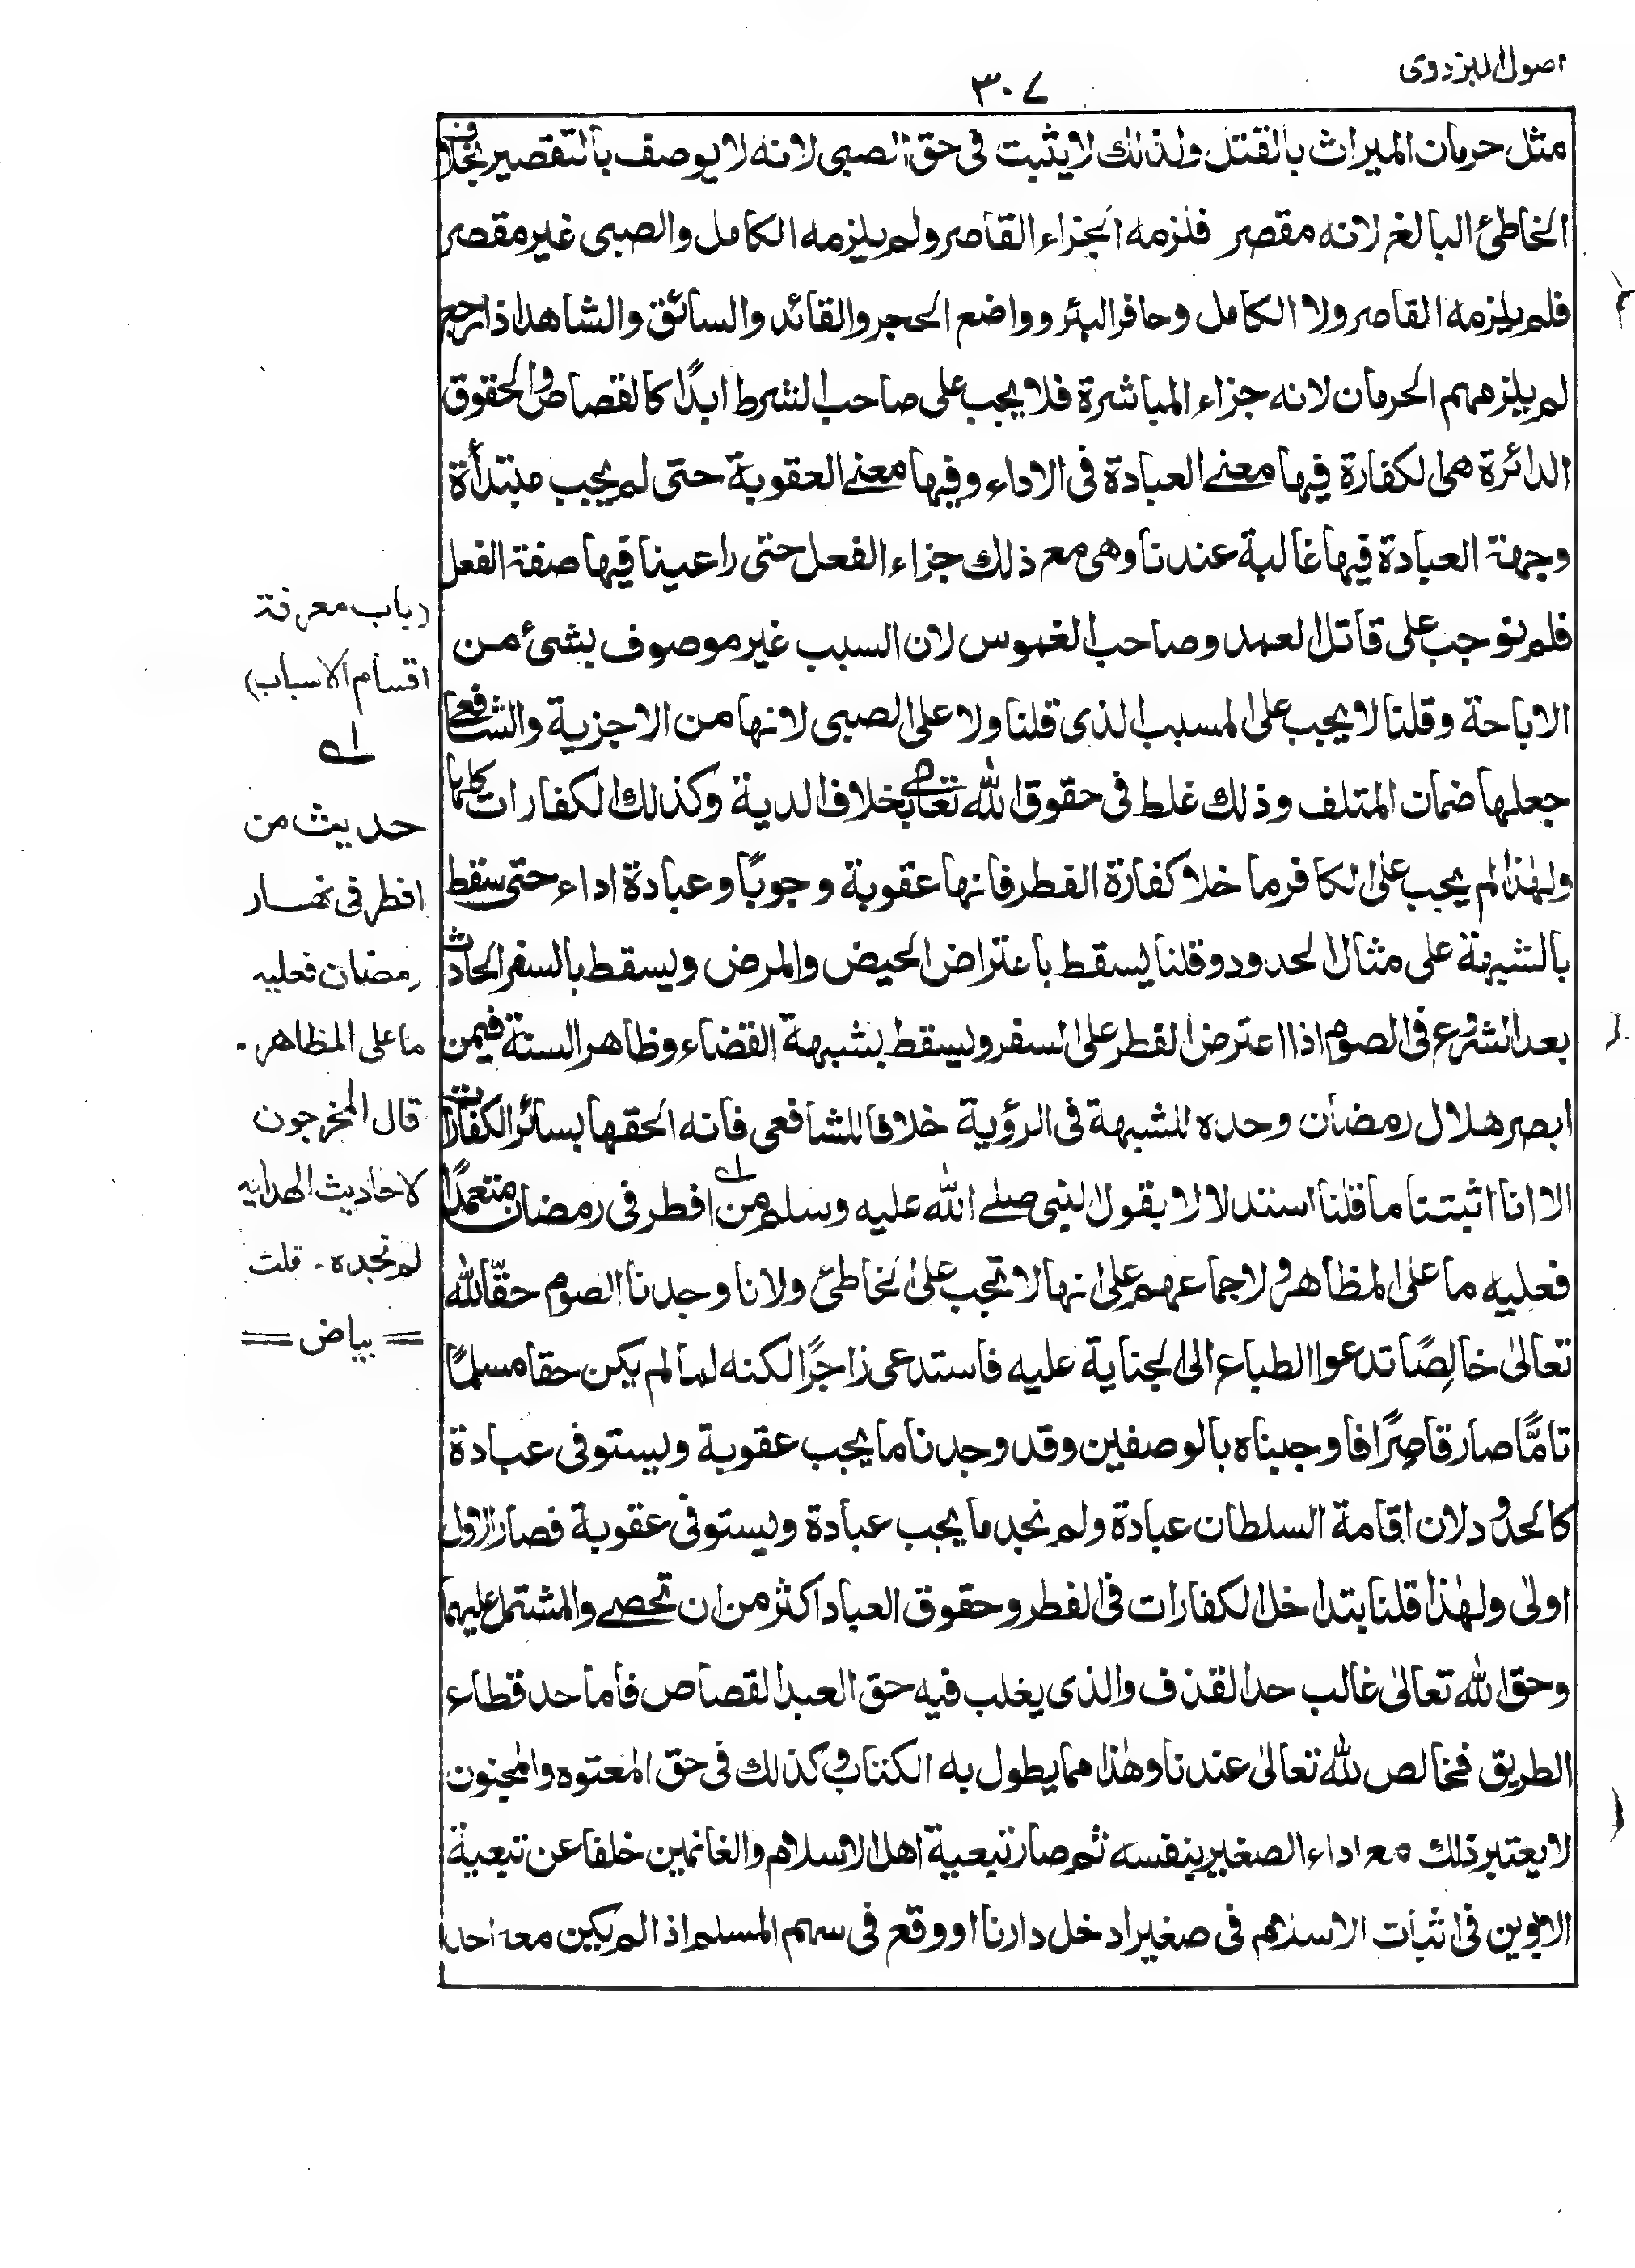 اصول البزدوى
٣٠٧
مثل حرمان الميراث بالقتل ولذلك لا يثبت فى حق الصبى لانه لا يوصف بالتقصير بخلاف
الخاطئ البالغ لانه مقصر فلزمه الجزاء القاصر ولم يلزمه الكامل والصبى غير مقصر
فلم يلزمه القاصر ولا الكامل وحافر البئر وواضع الحجر والقائد والسائق والشاهد اذا رجع
لم يلزمهم الحرمان لانه جزاء المباشرة فلا يجب على صاحب الشرط ابدًا كالقصاص والحقوق
الدائرة هى الكفارة فيها معنے العبادة فى الاداء وفيها معنے العقوبة حتى لم يجب مبتدأة
وجهة العبادة فيها غالبة عندنا وهى مع ذلك جزاء الفعل حتى راعينا فيها صفة الفعل
فلم نوجب على قاتل العمد وصاحب الغموس لان السبب غير موصوف بشئ من
الاباحة وقلنا لا يجب على المسبب الذى قلنا ولا على الصبى لانها من الاجزية والشافعے
جعلها ضمان المتلف وذلك غلط فى حقوق الله تعالى بخلاف الدية وكذلك الكفارات كلها
ولهٰذا لم يجب على الكافر ما خلا كفارة الفطر فانها عقوبة وجوبًا وعبادة اداء حتى سقط
بالشبهة على مثال الحدود وقلنا يسقط باعتراض الحيض والمرض ويسقط بالسفر الحادث
بعد الشروع فى الصوم اذا اعترض الفطر على السفر ويسقط بشبهة القضاء وظاهر السنة فيمن
ابصر هلال رمضان وحده للشبهة فى الرؤية خلافا للشافعى فانه الحقها بسائر الكفارات
الا انا اثبتنا ما قلنا استدلالا بقول النبى صلے الله عليه وسلم من افطر فى رمضان متعمدًا
فعليه ما على المظاهر ولاجماعهم على انها لا تجب على الخاطئ ولانا وجدنا الصوم حقّا لله
تعالىٰ خالِصًا تدعوا الطباع الى الجناية عليه فاستدعى زاجرًا لكنه لما لم يكن حقا مسلمًا
تامًّا صار قاصِرًا فاوجبناه بالوصفين وقد وجدنا ما يجب عقوبة ويستوفى عبادة
كالحدود لان اقامة السلطان عبادة ولم نجد ما يجب عبادة ويستوفى عقوبة فصار الاول
اولىٰ ولهٰذا قلنا بتداخل الكفارات فى الفطر وحقوق العباد اكثر من ان تحصے والمشتمل عليهما
وحق الله تعالىٰ غالب حد القذف والذى يغلب فيه حق العبد القصاص فاما حد قطاع
الطريق فخالص لله تعالىٰ عندنا وهٰذا مما يطول به الكتاب وكذلك فى حق المعتوه والمجنون
لا يعتبر ذلك مع اداء الصغير بنفسه ثم صار تبعية اهل الاسلام والغانمين خلفا عن تبعية
الابوين فى اثبات الاسلام فى صغير ادخل دارنا او وقع فى سهم المسلم اذا لم يكن معه احد
(باب معرفة
اقسام الاسباب)
لـه
حديث من
افطر فى نهار
رمضان فعليه
ما على المظاهر ۔
قال المخرجون
لاحاديث الهدايه
لم نجده ۔ قلت
= بياض =